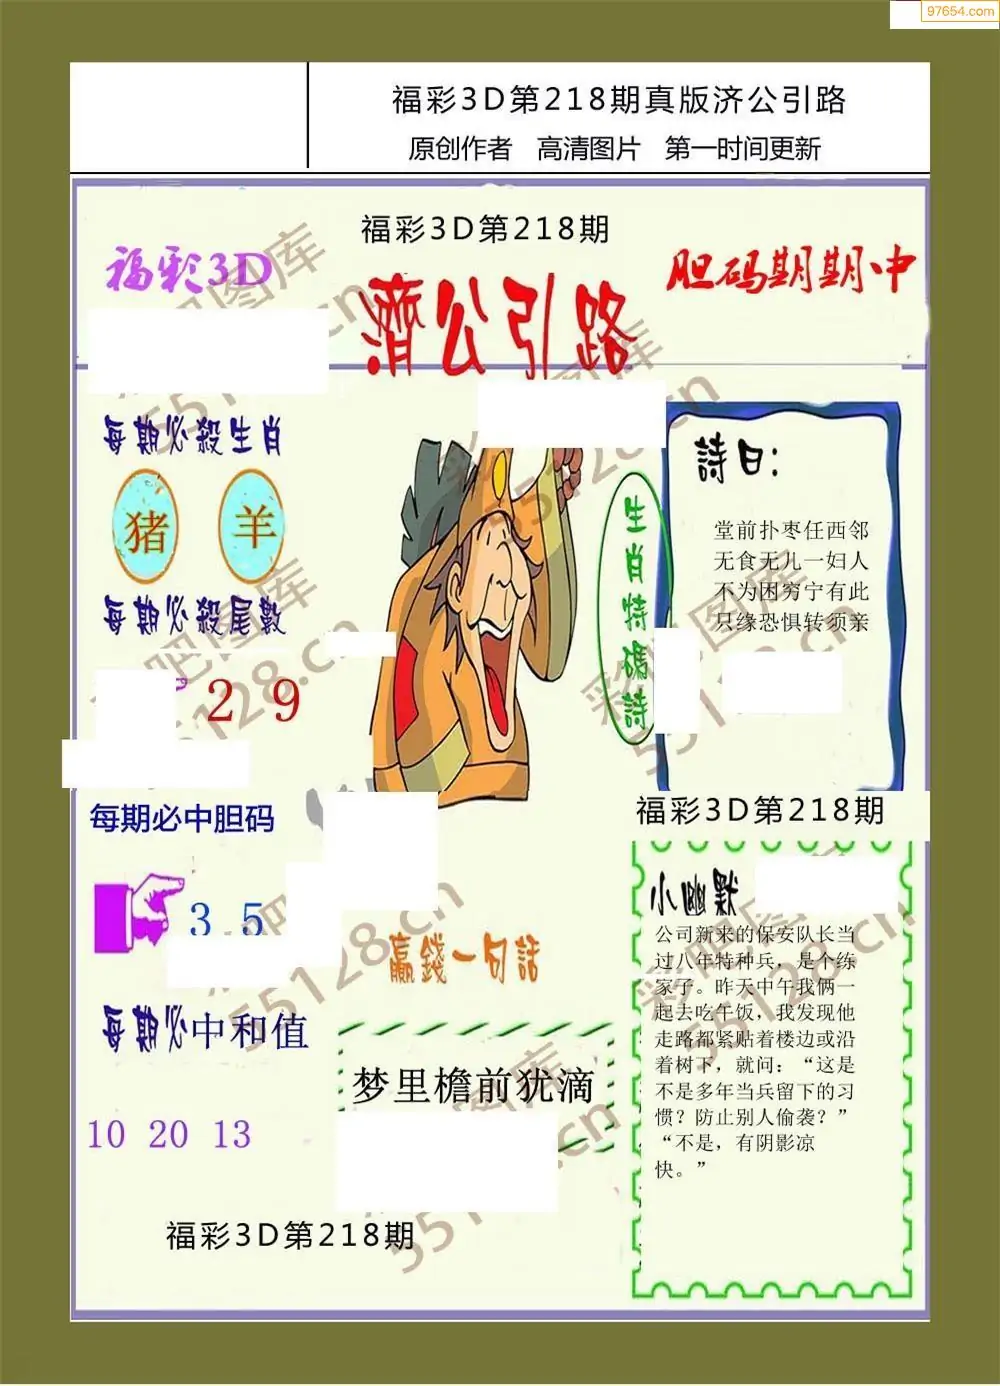 97654.com
福彩3D第218期真版济公引路
原创作者 高清图片 第一时间更新
福彩3D第218期
福彩3D
胆码期期中
濟公引路
每期必殺生肖
猪 羊
每期必殺尾數
2 9
每期必中胆码
3 5
每期必中和值
10 20 13
福彩3D第218期
生肖特碼詩
詩曰:
堂前扑枣任西邻
无食无儿一妇人
不为困穷宁有此
只缘恐惧转须亲
福彩3D第218期
小幽默
公司新来的保安队长当
过八年特种兵，是个练
家子。昨天中午我俩一
起去吃午饭，我发现他
走路都紧贴着楼边或沿
着树下，就问：“这是
不是多年当兵留下的习
惯？防止别人偷袭？”
“不是，有阴影凉
快。”
赢錢一句話
梦里檐前犹滴
彩吧图库
55128.cn